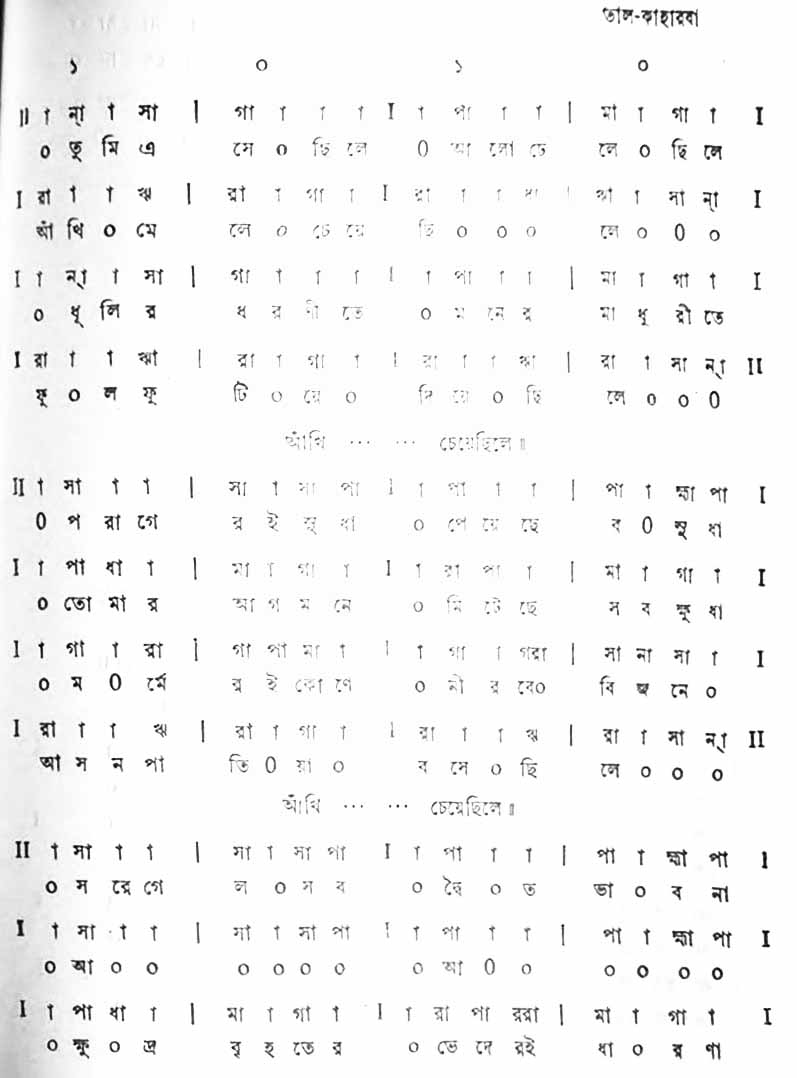 তাল-কাহারবা
১ ০ ১ ০
II া ন্া া সা | গা া া া I া পা া া | মা া গা া I
০ তু মি এ সে ০ ছি লে ০ আ লো ঢে লে ০ ছি লে
I রা া া ঋ | রা া গা া I রা া া ঋা | ঋা া সা ন্া I
আঁ খি ০ মে লে ০ চে য়ে ছি ০ ০ ০ লে ০ ০ ০
I া ন্া া সা | গা া া া I া পা া া | মা া গা া I
০ ধূ লি র ধ র ণী তে ০ ম নে র মা ধু রী তে
I রা া া ঋা | রা া গা া I রা া া ঋা | রা া সা ন্া II
ফু ০ ল ফু টি ০ য়ে ০ দি য়ে ০ ছি লে ০ ০ ০
আঁখি ... ... চেয়েছিলে॥
II া সা া া | সা া সা পা I া পা া া | পা া হ্মা পা I
০ প রা গে র ই সু ধা ০ পে য়ে ছে ব ০ সু ধা
I া পা ধা া | মা া গা া I া রা পা া | মা া গা া I
০ তো মা র আ গ ম নে ০ মি টে ছে স ব ক্ষু ধা
I া গা া রা | গা পা মা া I া গা া গরা | সা না সা া I
০ ম ০ র্মে র ই কো ণে ০ নী র বে০ বি জ নে ০
I রা া া ঋ | রা া গা া I রা া া ঋ | রা া সা ন্া II
আ স ন পা তি ০ য়া ০ ব সে ০ ছি লে ০ ০ ০
আঁখি ... ... চেয়েছিলে॥
II া সা া া | সা া সা পা I া পা া া | পা া হ্মা পা I
০ স রে গে ল ০ স ব ০ দ্বৈ ০ ত ভা ০ ব না
I া সা া া | সা া সা পা I া পা া া | পা া হ্মা পা I
০ আ ০ ০ ০ ০ ০ ০ ০ আ ০ ০ ০ ০ ০ ০
I া পা ধা া | মা া গা া I া রা পা ররা | মা া গা া I
০ ক্ষু ০ দ্র বৃ হ তে র ০ ভে দে রই ধা ০ র ণা